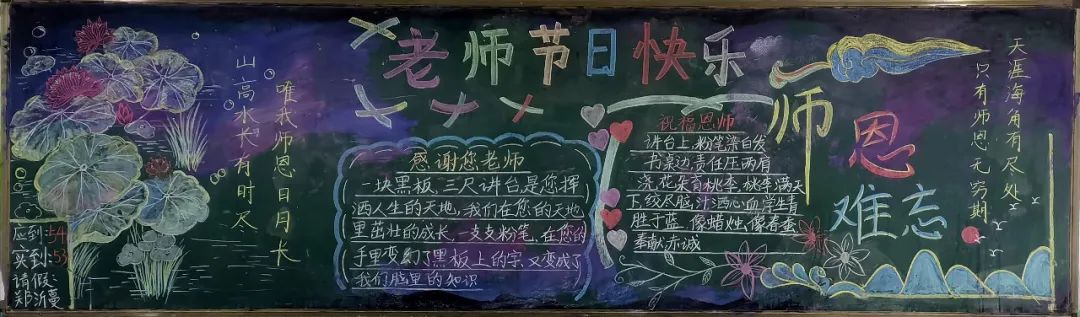 老师节日快乐
唯我师恩日月长
山高水长有时尽
感谢您老师
一块黑板，三尺讲台是您挥
洒人生的天地，我们在您的天地
里茁壮的成长，一支支粉笔，在您的
手里变幻了黑板上的字，又变成了
我们脑里的知识
祝福恩师
讲台上，粉笔染白发
书桌边，责任压两肩
浇花朵育桃李，桃李满天
下绞尽脑汁洒心血，学生青
胜于蓝，像蜡烛，像春蚕
奉献赤诚
师恩难忘
天涯海角有尽处
只有师恩无穷期
应到:54
实到:53
请假:
郑沂蔓